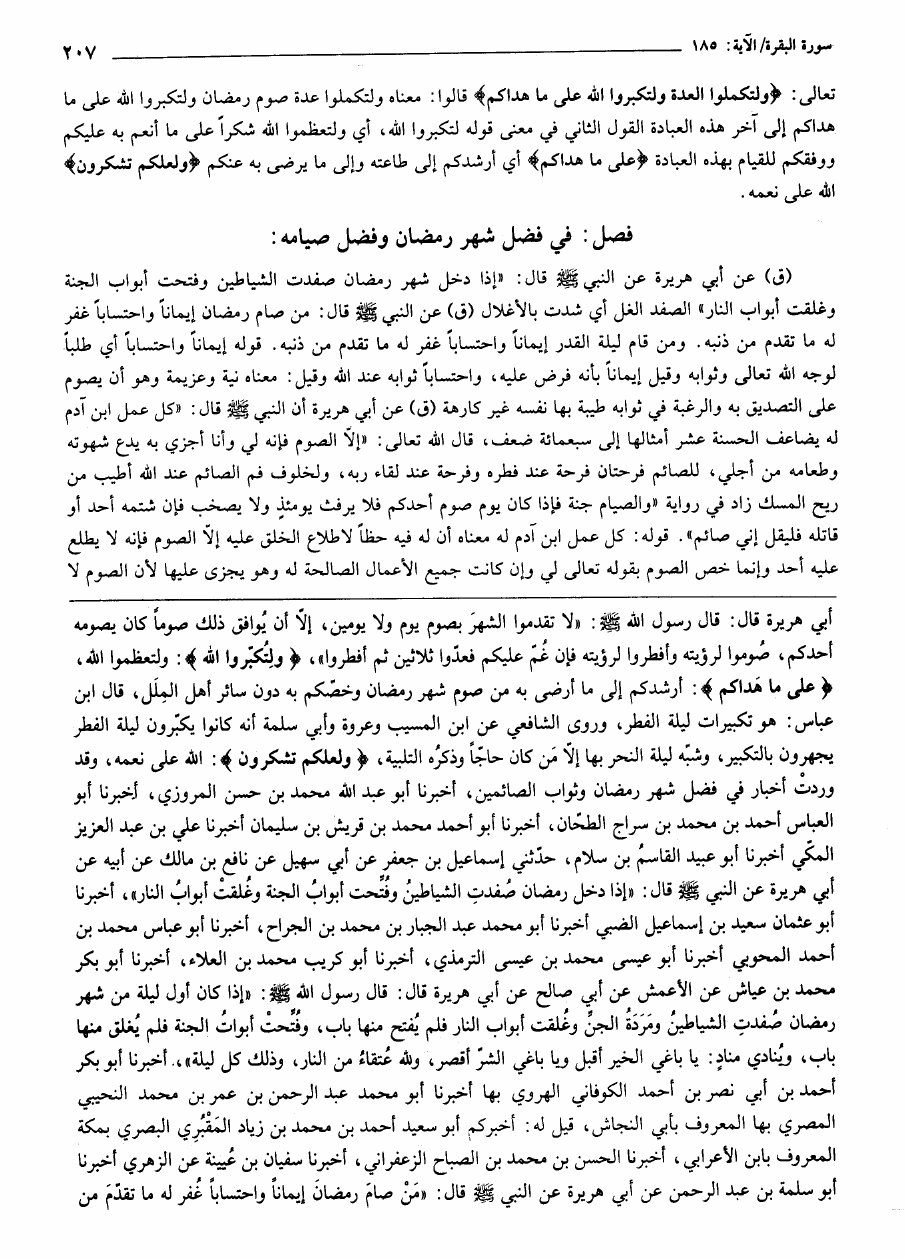 سورة البقرة/ الآية: ١٨٥ ٢٠٧
تعالى: ﴿ولتكملوا العدة ولتكبروا الله على ما هداكم﴾ قالوا: معناه ولتكملوا عدة صوم رمضان ولتكبروا الله على ما
هداكم إلى آخر هذه العبادة القول الثاني في معنى قوله لتكبروا الله، أي ولتعظموا الله شكراً على ما أنعم به عليكم
ووفقكم للقيام بهذه العبادة ﴿على ما هداكم﴾ أي أرشدكم إلى طاعته وإلى ما يرضى به عنكم ﴿ولعلكم تشكرون﴾
الله على نعمه.
فصل: في فضل شهر رمضان وفضل صيامه:
(ق) عن أبي هريرة عن النبي ﷺ قال: «إذا دخل شهر رمضان صفدت الشياطين وفتحت أبواب الجنة
وغلقت أبواب النار» الصفد الغل أي شدت بالأغلال (ق) عن النبي ﷺ قال: من صام رمضان إيماناً واحتساباً غفر
له ما تقدم من ذنبه. ومن قام ليلة القدر إيماناً واحتساباً غفر له ما تقدم من ذنبه. قوله إيماناً واحتساباً أي طلباً
لوجه الله تعالى وثوابه وقيل إيماناً بأنه فرض عليه، واحتساباً ثوابه عند الله وقيل: معناه نية وعزيمة وهو أن يصوم
على التصديق به والرغبة في ثوابه طيبة بها نفسه غير كارهة (ق) عن أبي هريرة أن النبي ﷺ قال: «كل عمل ابن آدم
له يضاعف الحسنة عشر أمثالها إلى سبعمائة ضعف، قال الله تعالى: «إلّا الصوم فإنه لي وأنا أجزي به يدع شهوته
وطعامه من أجلي، للصائم فرحتان فرحة عند فطره وفرحة عند لقاء ربه، ولخلوف فم الصائم عند الله أطيب من
ريح المسك زاد في رواية «والصيام جنة فإذا كان يوم صوم أحدكم فلا يرفث يومئذٍ ولا يصخب فإن شتمه أحد أو
قاتله فليقل إني صائم». قوله: كل عمل ابن آدم له معناه أن له فيه حظاً لاطلاع الخلق عليه إلّا الصوم فإنه لا يطلع
عليه أحد وإنما خص الصوم بقوله تعالى لي وإن كانت جميع الأعمال الصالحة له وهو يجزى عليها لأن الصوم لا
أبي هريرة قال: قال رسول الله ﷺ: «لا تقدموا الشهرَ بصوم يوم ولا يومين، إلّا أن يُوافق ذلك صوماً كان يصومه
أحدكم، صُوموا لرؤيته وأفطروا لرؤيته فإن غُمّ عليكم فعدّوا ثلاثين ثم أفطروا»، ﴿ ولتُكبّروا الله ﴾: ولتعظموا الله،
﴿ على ما هَداكم ﴾: أرشدكم إلى ما أرضى به من صوم شهر رمضان وخصّكم به دون سائر أهل المِلَل، قال ابن
عباس: هو تكبيرات ليلة الفطر، وروى الشافعي عن ابن المسيب وعروة وأبي سلمة أنه كانوا يكبّرون ليلة الفطر
يجهرون بالتكبير، وشبّه ليلة النحر بها إلّا مَن كان حاجّاً وذكرُه التلبية، ﴿ ولعلكم تشكرون ﴾: الله على نعمه، وقد
وردتْ أخبار في فضل شهر رمضان وثواب الصائمين، أخبرنا أبو عبد الله محمد بن حسن المروزي، أخبرنا أبو
العباس أحمد بن محمد بن سراج الطحّان، أخبرنا أبو أحمد محمد بن قريش بن سليمان أخبرنا علي بن عبد العزيز
المكّي أخبرنا أبو عبيد القاسمُ بن سلام، حدّثني إسماعيل بن جعفر عن أبي سهيل عن نافع بن مالك عن أبيه عن
أبي هريرة عن النبي ﷺ قال: «إذا دخل رمضان صُفدتِ الشياطينُ وفُتِّحت أبوابُ الجنة وغُلقتْ أبوابُ النار»، أخبرنا
أبو عثمان سعيد بن إسماعيل الضبي أخبرنا أبو محمد عبد الجبار بن محمد بن الجراح، أخبرنا أبو عباس محمد بن
أحمد المحوبي أخبرنا أبو عيسى محمد بن عيسى الترمذي، أخبرنا أبو كريب محمد بن العلاء، أخبرنا أبو بكر
محمد بن عياش عن الأعمش عن أبي صالح عن أبي هريرة قال: قال رسول الله ﷺ: «إذا كان أول ليلة من شهر
رمضان صُفدتِ الشياطينُ ومَرَدَةُ الجنِّ وغُلقت أبواب النار فلم يُفتح منها باب، وفُتِّحتْ أبواتُ الجنة فلم يُغلق منها
باب، ويُنادي منادٍ: يا باغي الخير أقبل ويا باغي الشرّ أقصر، ولله عُتقاءُ من النار، وذلك كل ليلة»، أخبرنا أبو بكر
أحمد بن أبي نصر بن أحمد الكوفاني الهروي بها أخبرنا أبو محمد عبد الرحمن بن عمر بن محمد النحيبي
المصري بها المعروف بأبي النجاش، قيل له: أخبركم أبو سعيد أحمد بن محمد بن زياد المَقْبُري البصري بمكة
المعروف بابن الأعرابي، أخبرنا الحسن بن محمد بن الصباح الزعفراني، أخبرنا سفيان بن عُيينة عن الزهري أخبرنا
أبو سلمة بن عبد الرحمن عن أبي هريرة عن النبي ﷺ قال: «مَنْ صامَ رمضانَ إيماناً واحتساباً غُفر له ما تقدّمَ من